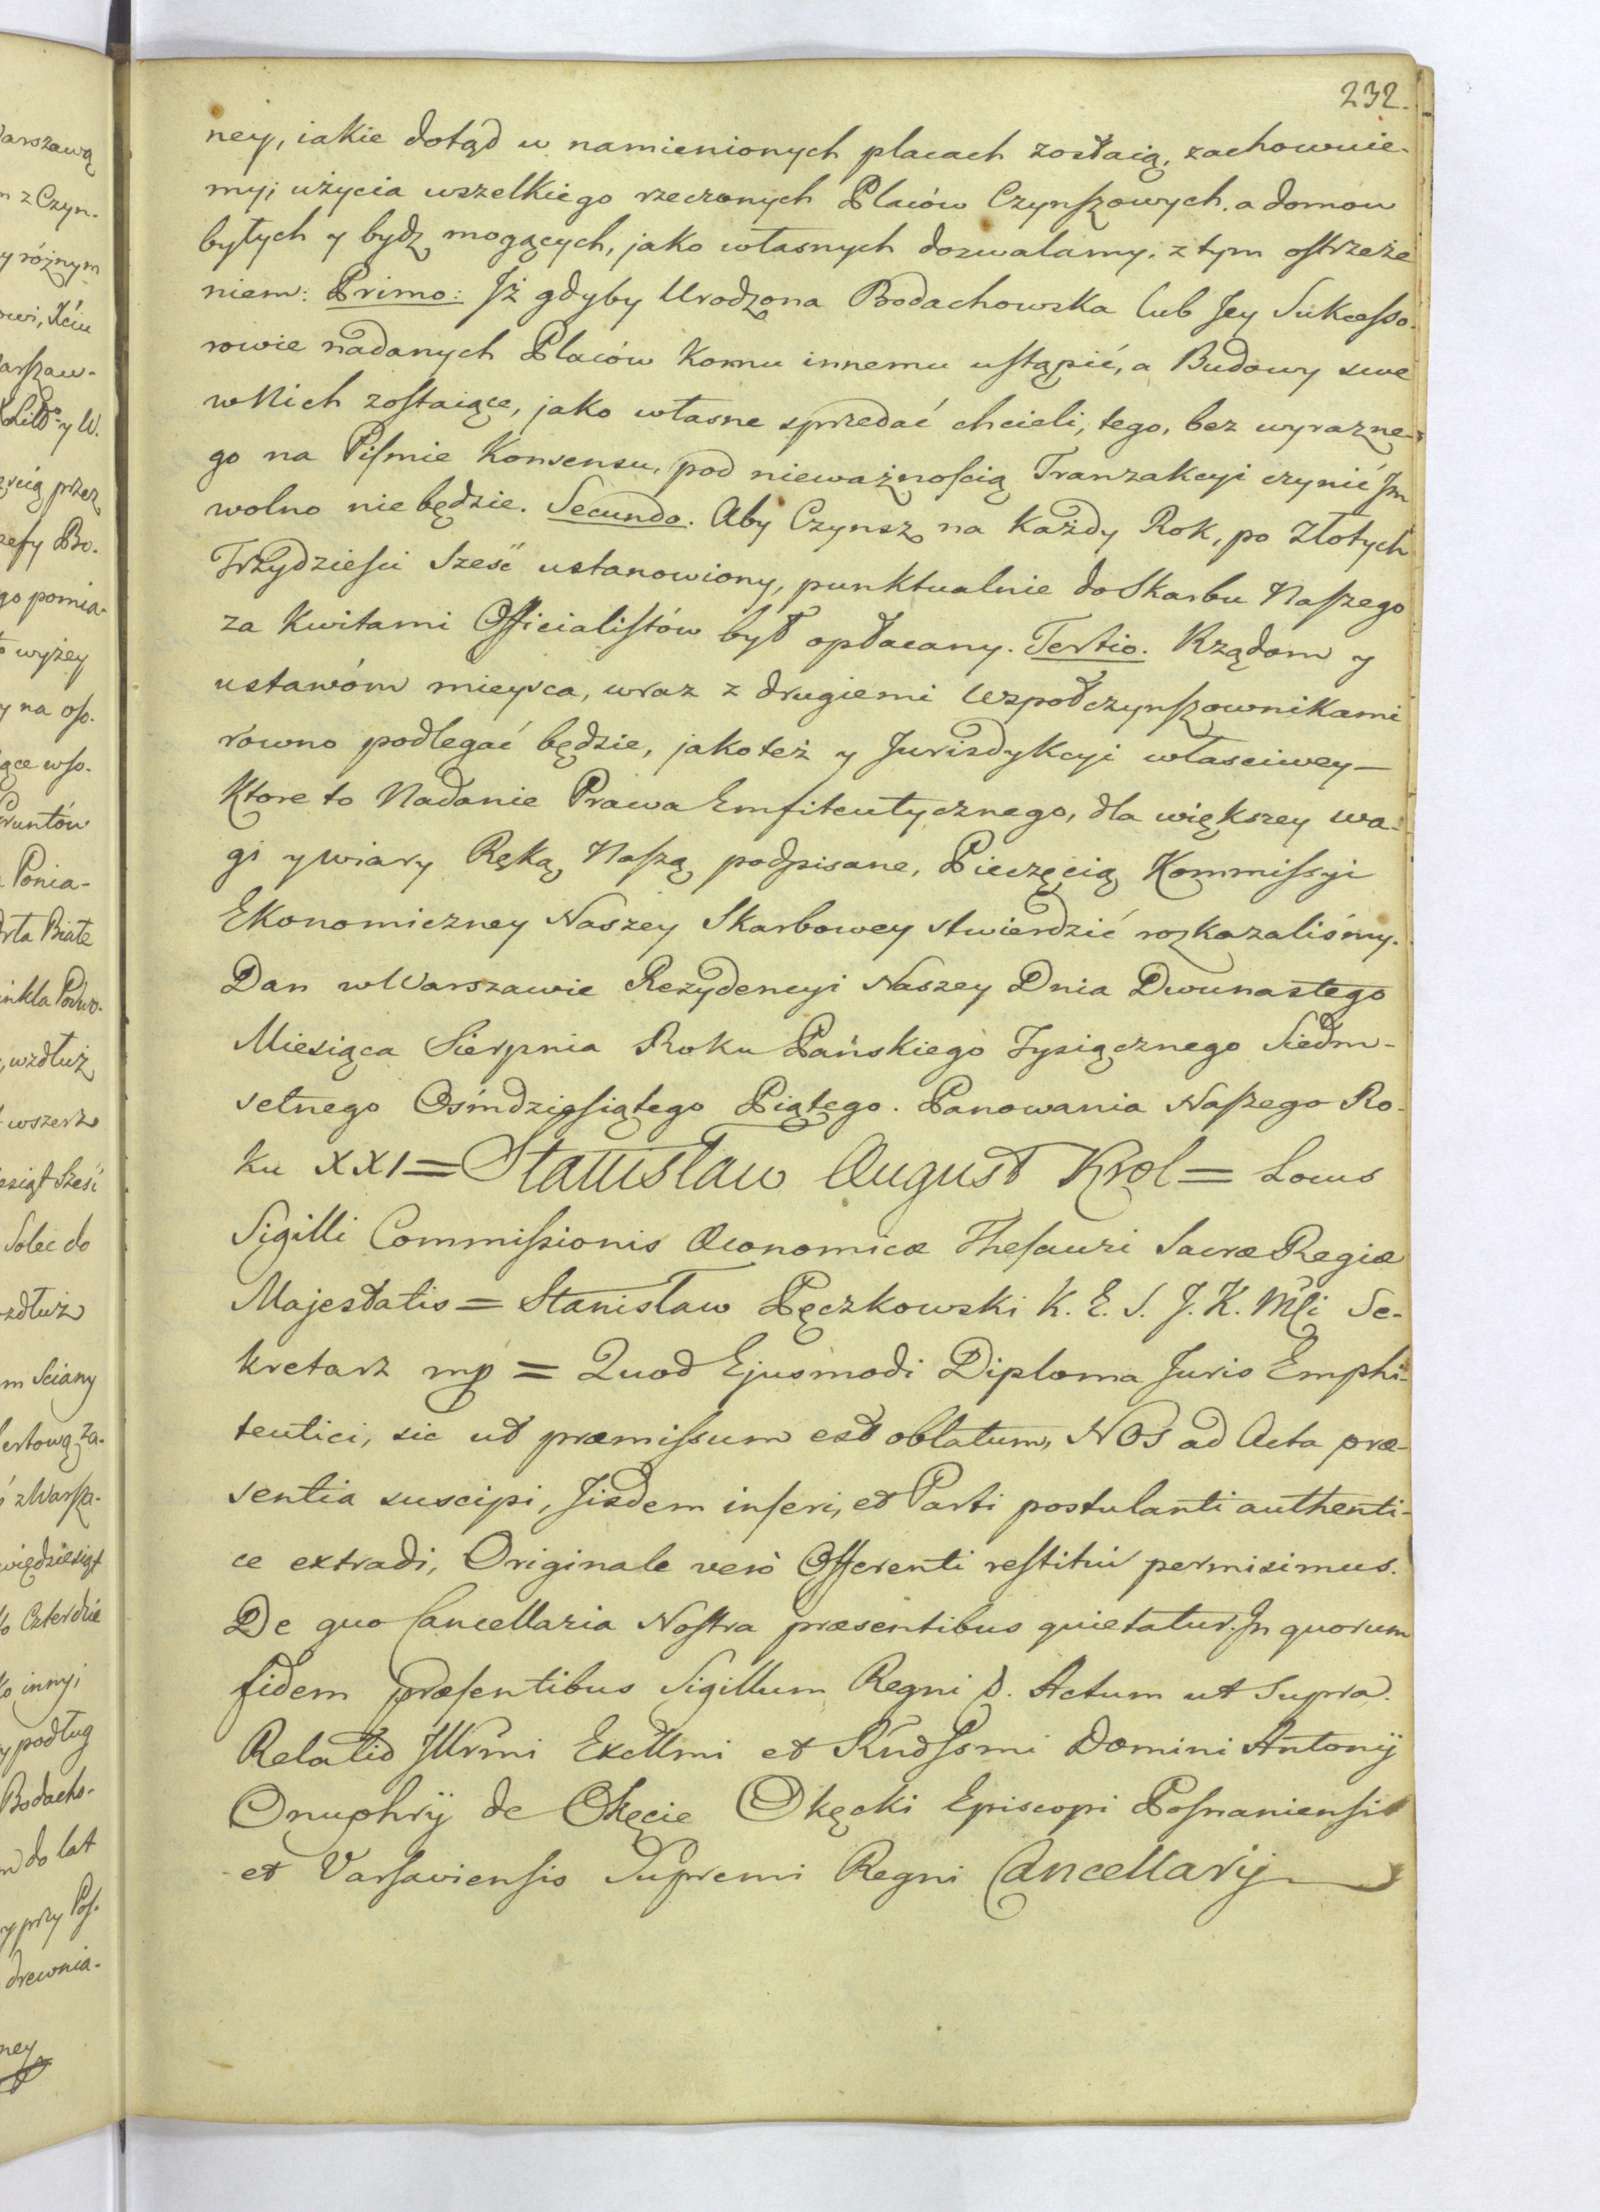 232.
ney, iakie dotąd w namienionych placach zostaią, zachowuie-
my; użycia wszelkiego rzeczonych Placów Czynszowych, a domow
byłych y bydz mogących, jako własnych dozwalamy, z tym ostrzeże
niem: Primo: Jż gdyby Urodzona Bodachowska lub Jey Sukcesso-
rowie nadanych Placów komu innemu ustąpić, a Budowy swe
w Nich zostaiące, jako własne sprzedać chcieli, tego, bez wyrazne-
go na Piśmie Konsensu, pod nieważnością Tranzakcyi czynić Jm
wolno nie będzie. Secundo. Aby Czynsz na Każdy Rok, po Złotych
Trzydzieści Sześć ustanowiony, punktualnie do Skarbu Naszego
za Kwitami Officialistów był opłacany. Tertio. Rządom y
ustawóm mieysca, wraz z drugiemi Wspołczynszownikami
rowno podlegać będzie, jako też y Jurisdykcyi własciwey—
Ktore to Nadanie Prawa Emfiteutycznego, dla większey wa-
gi y wiary Ręką Naszą podpisane, Pieczęcią Kommissyi
Ekonomiczney Naszey Skarbowey stwierdzić rozkazaliśmy.
Dan w Warszawie Rezydencyi Naszey Dnia Dwunastego
Miesiąca Sierpnia Roku Pańskiego Tysiącznego Siedm-
setnego Osmdziesiątego Piątego. Panowania Naszego Ro-
ku XXI = Stanisław August Krol = Locus
Sigilli Commissionis Œconomicæ Thesauri Sacræ Regiæ
Majestatis = Stanisław Pęczkowski K. E. S. J. K. Mści Se-
kretarz mp = Quod Ejusmodi Diploma Juris Emphi-
teutici, sic ut præmissum est oblatum, NOS ad Acta præ-
sentia suscipi, Jisdem inseri, et Parti postulanti authenti-
ce extradi, Originale verò Offerenti restitui permisimus.
De quo Cancellaria Nostra præsentibus quietatur. Jn quorum
fidem præsentibus Sigillum Regni Actum ut supra.
Relatio Jllrmi Excllmi et Rndssmi Domini Antonij
Onuphrij de Okęcie Okęcki Episcopi Posnaniensis
et Varsaviensis Supremi Regni Cancellarij